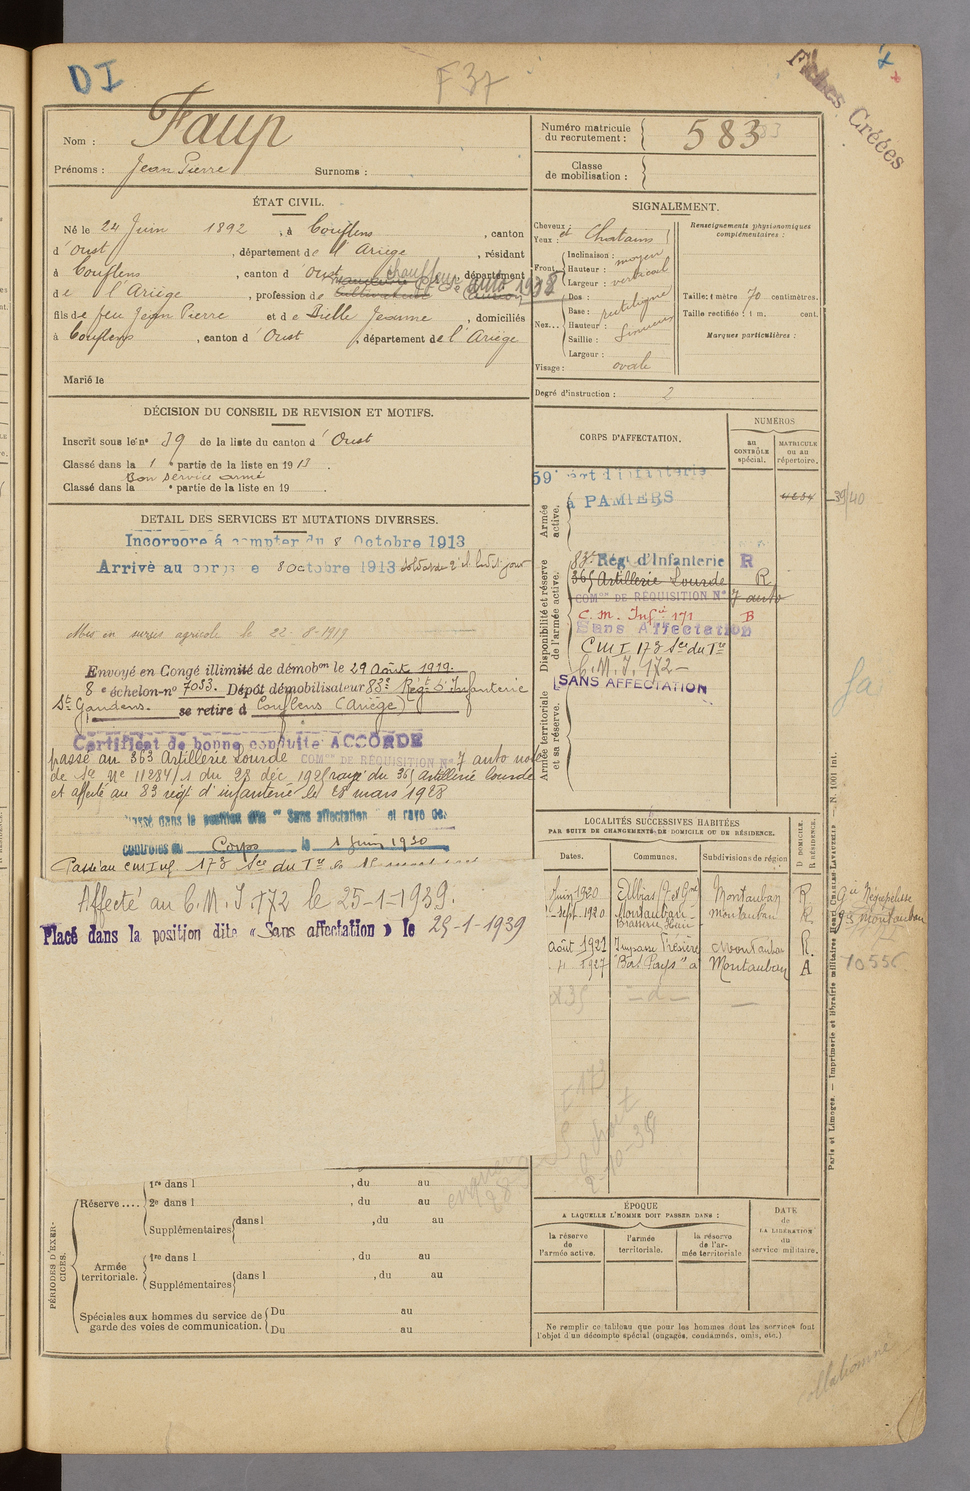 DI
F 37
Fiches Créées
Nom : Faup
Prénoms : Jean Pierre Surnoms :
Numéro matricule du recrutement : 583
Classe de mobilisation :
ÉTAT CIVIL.
Né le 24 Juin 1892, à Couflens, canton
d'Oust, département de l'Ariège, résidant
à Couflens, canton d'Oust, département
de l'Ariège, profession de Cultivateur chauffeur auto 1938
fils de feu Jean Pierre et de Dielle Jeanne, domiciliés
à Couflens, canton d'Oust, département de l'Ariège
Marié le
SIGNALEMENT.
Cheveux et
Yeux : Chatains
Front Inclinaison : moyen
Hauteur : vertical
Largeur :
Nez... Dos :
Base : rectiligne
Hauteur :
Saillie : Sinueux
Largeur :
Visage : ovale
Renseignements physionomiques complémentaires :
Taille : 1 mètre 70 centimètres.
Taille rectifiée : 1 m. cent.
Marques particulières :
Degré d'instruction : 2
DÉCISION DU CONSEIL DE REVISION ET MOTIFS.
Inscrit sous le n° 39 de la liste du canton d'Oust
Classé dans la 1e partie de la liste en 1913
Bon service armé
Classé dans la e partie de la liste en 19
DETAIL DES SERVICES ET MUTATIONS DIVERSES.
Incorporé à compter du 8 Octobre 1913
Arrivé au corps le 8 octobre 1913 Soldat de 2e cl. ledit jour
Mis en sursis agricole le 22-8-1919
Envoyé en Congé illimité de démobon le 29 Août 1919.
8e échelon-n° 7053. Dépôt démobilisateur 83e Régt d'Infanterie
St Gaudens. se retire à Couflens (Ariège)
Certificat de bonne conduite ACCORDÉ
passé au 363 Artillerie Lourde COMon DE RÉQUISITION N° 7 auto
de Sce N° 11284/1 du 28 déc 1925 rayé du 365 Artillerie lourde
et affecté au 83 régt d'infanterie le 28 mars 1928
Passé dans la position dite "Sans affectation" et rayé des
contrôles du Corps le 1 juin 1930
Passé au CM Inf 173 Sce du Tre le
Affecté au C.M.I. 172 le 25-1-1939.
Placé dans la position dite « Sans affectation » le 25-1-1939
CORPS D'AFFECTATION.
NUMÉROS
au CONTRÔLE spécial.
MATRICULE ou au répertoire.
Armée active.
59e Régt d'infanterie
à PAMIERS
4234
39/40
Disponibilité et réserve de l'armée active.
83e Régt d'Infanterie R
365 Artillerie Lourde R
COMon DE RÉQUISITION N° 7 auto
C. M. Infie 171 B
Sans Affectation
CMI 173 Sce du Tre
C.M.I. 172
SANS AFFECTATION
Armée territoriale et sa réserve.
LOCALITÉS SUCCESSIVES HABITÉES
PAR SUITE DE CHANGEMENTS DE DOMICILE OU DE RÉSIDENCE.
Dates. Communes. Subdivisions de région D. DOMICILE. R. RÉSIDENCE.
Juin 1920 Albias (T et Gne) Montauban R Gie Négrepelisse
Sept. 1920 Montauban Montauban R
Août 1921 Impasse Montauban R.
1927 "Bas Pays" à Montauban A 10556
ÉPOQUE
A LAQUELLE L'HOMME DOIT PASSER DANS :
la réserve de l'armée active.
l'armée territoriale.
la réserve de l'armée territoriale
DATE de LA LIBÉRATION du service militaire.
Ne remplir ce tableau que pour les hommes dont les services font
l'objet d'un décompte spécial (engagés, condamnés, omis, etc.)
PÉRIODES D'EXERCICES.
Réserve.... 1re dans l , du au
2e dans l , du au
Supplémentaires dans l , du au
Armée territoriale. 1re dans l , du au
Supplémentaires dans l , du au
Spéciales aux hommes du service de garde des voies de communication. Du au
Du au
Paris et Limoges. — Imprimerie et librairie militaires Henri CHARLES-LAVAUZELLE — N. 1001 Int.